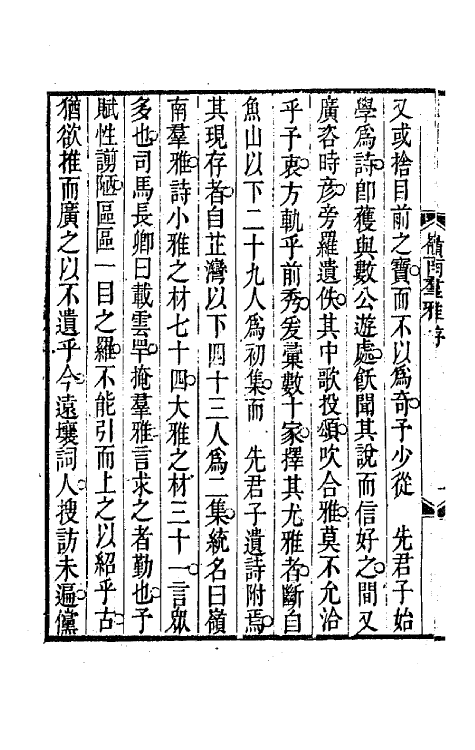 又或捨目前之寶而不以為奇予少從　先君子始
學為詩卽獲與數公遊處飫聞其說而信好之間又
廣咨時彥旁羅遺佚其中歌投頌吹合雅莫不允洽
乎予衷方軌乎前秀爰彙數十家擇其尤雅者斷自
魚山以下二十九人為初集而　先君子遺詩附焉
其現存者自芷灣以下四十三人為二集統名曰嶺
南羣雅詩小雅之材七十四大雅之材三十一言眾
多也司馬長卿曰載雲䍐掩羣雅言求之者勤也予
賦性謭陋區區一目之羅不能引而上之以紹乎古
猶欲推而廣之以不遺乎今遠壤詞人搜訪未遍儻
嶺南羣雅序